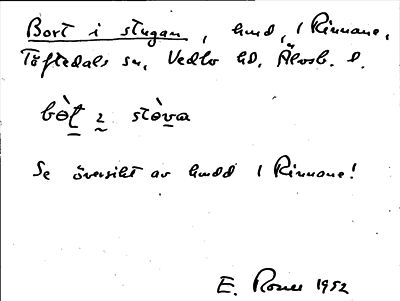 Bort i stugan, hmd, 1 Rinnane,
Töftedals sn, Vedbo hd, Älvsb. l.
stòva
Se översikt av hmdd 1 Rinnane!
E. Rosell 1952